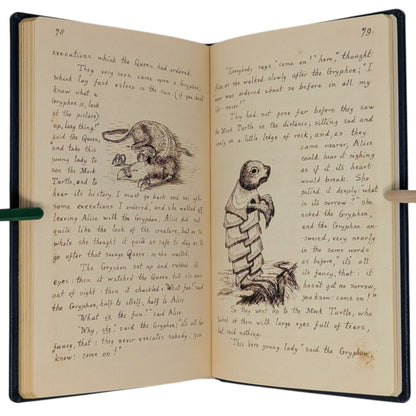 78
executions which the Queen had ordered.
They very soon came upon a Gryphon,
which lay fast asleep in the sun: (if you don't
know what a
Gryphon is, look
at the picture):
"Up, lazy thing!"
said the Queen,
"and take this
young lady to
see the Mock
Turtle, and to
hear its history. I must go back and see after
some executions I ordered, and she walked off,
leaving Alice with the Gryphon. Alice did not
quite like the look of the creature, but on the
whole she thought it quite as safe to stay as to
go after that savage Queen: so she waited.
The Gryphon sat up and rubbed its
eyes: then it watched the Queen till she was
out of sight: then it chuckled. "What fun!" said
the Gryphon, half to itself, half to Alice.
"What is the fun?" said Alice.
"Why, she," said the Gryphon; "it's all her
fancy, that: they never executes nobody, you
know: come on!"
79.
"Everybody says 'come on!' here," thought
Alice, as she walked slowly after the Gryphon; "I
never was ordered about so before in all my
life - never!"
They had not gone far before they saw
the Mock Turtle in the distance, sitting sad and
lonely on a little ledge of rock, and, as they
came nearer, Alice
could hear it sighing
as if its heart
would break. She
pitied it deeply: "what
is its sorrow?" she
asked the Gryphon,
and the Gryphon an-
swered, very nearly
in the same words
as before, "it's all
its fancy, that: it
hasn't got no sorrow,
you know: come on!"
So they went up to the Mock Turtle, who
looked at them with large eyes full of tears,
but said nothing.
"This here young lady" said the Gryphon,